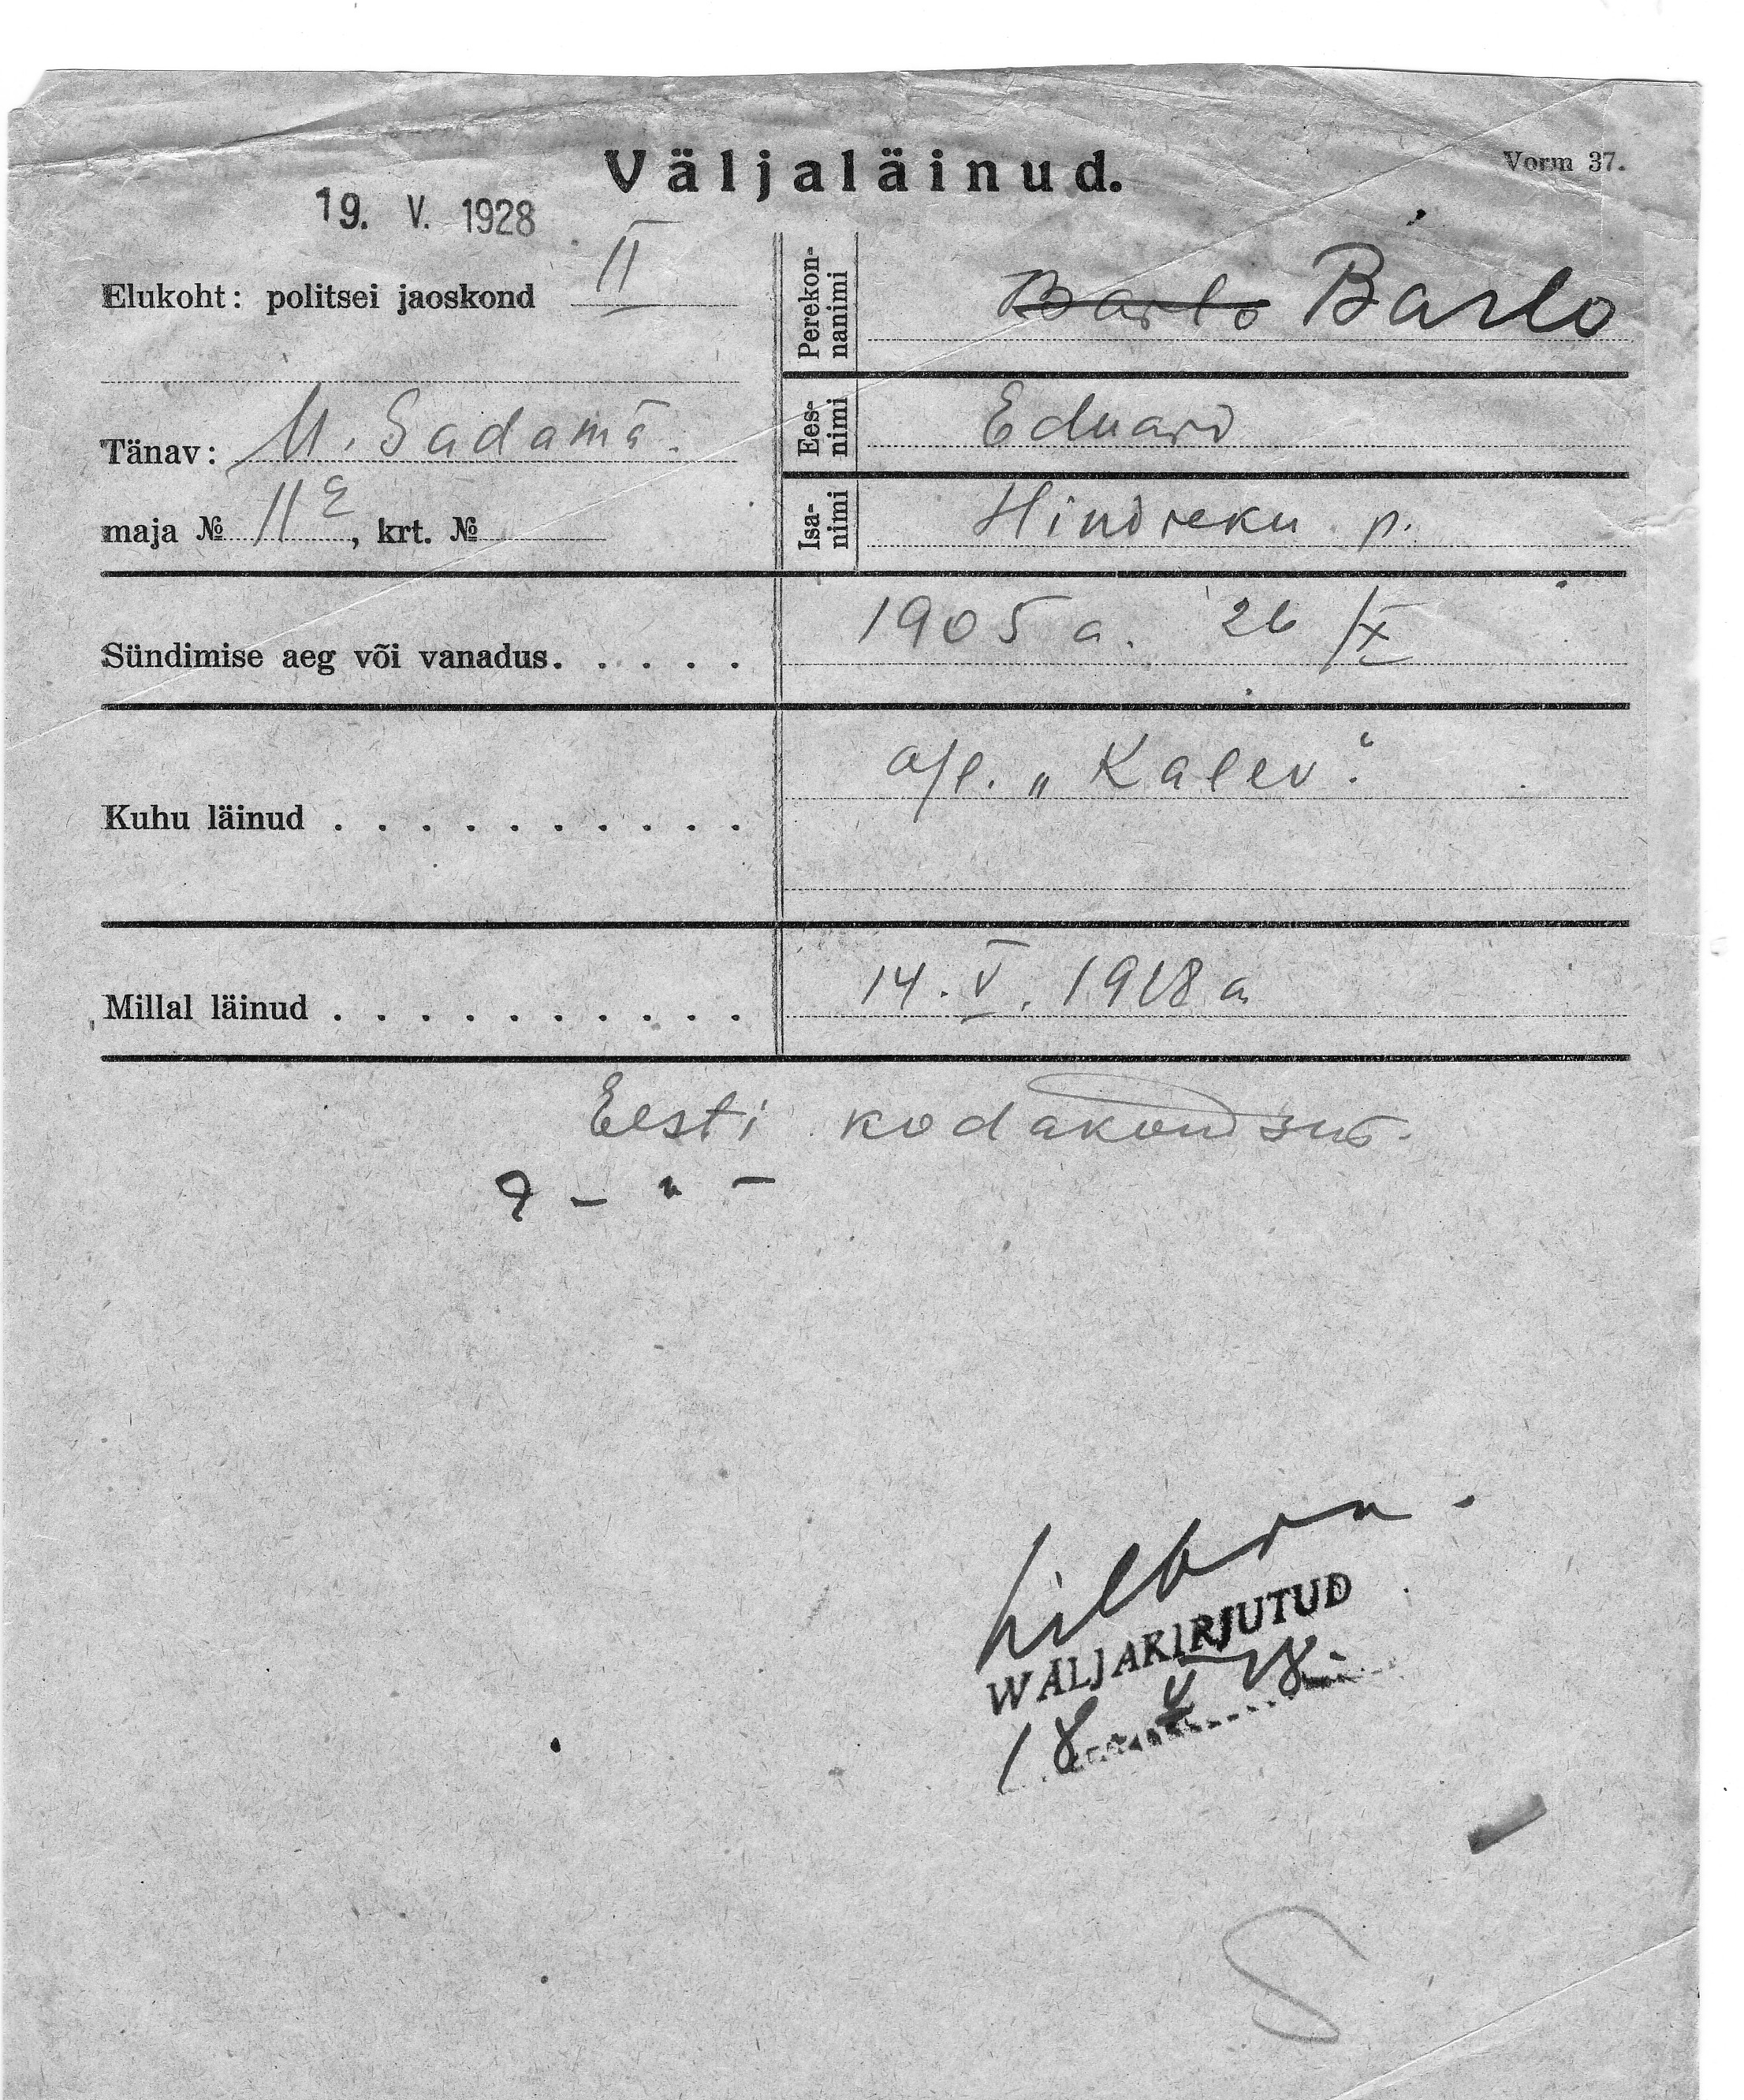 Väljaläinud.
Vorm 37.
19. V. 1928
Elukoht: politsei jaoskond II
Perekon-
nanimi
Barlo Barlo
Tänav: U. Sadama.
Ees-
nimi
Eduard
maja № 11ᵃ, krt. №
Isa-
nimi
Hindreku p.
Sündimise aeg või vanadus. . . . . .
1905 a. 26/IX
Kuhu läinud . . . . . . . . . .
a/l. „Kalev".
Millal läinud . . . . . . . . . .
14. V. 1928 a
Eesti kodakondsus.
WÄLJAKIRJUTUD
18 V 28.